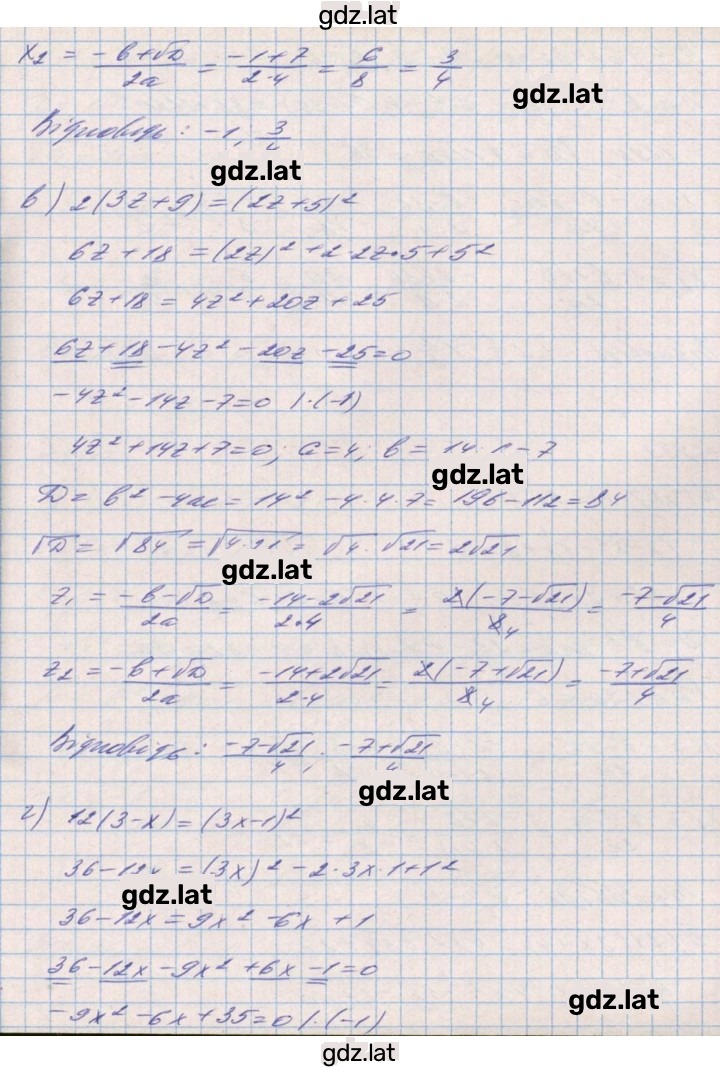 gdz.lat
x₂ = (-b+√D)/2a = (-1+7)/(2·4) = 6/8 = 3/4
gdz.lat
Відповідь: -1, 3/4
gdz.lat
в) 2(3z+9)=(2z+5)²
6z+18 =(2z)²+2·2z·5+5²
6z+18 = 4z²+20z+25
6z+18-4z²-20z-25=0
-4z²-14z-7=0 |·(-1)
4z²+14z+7=0; a=4; b=14 = 7
gdz.lat
D = b²-4ac = 14² -4·4·7= 196-112=84
√D = √84 =√4·21= √4·√21=2√21
gdz.lat
z₁ = (-b-√D)/2a = (-14-2√21)/(2·4) = 2(-7-√21)/8 4 = (-7-√21)/4
z₂ = (-b+√D)/2a = (-14+2√21)/(2·4) = 2(-7+√21)/8 4 = (-7+√21)/4
Відповідь: (-7-√21)/4; (-7+√21)/4
gdz.lat
г) 12(3-x)=(3x-1)²
36-12x =(3x)²-2·3x·1+1²
gdz.lat
36-12x=9x²-6x+1
36-12x-9x²+6x-1=0
gdz.lat
-9x²-6x+35=0 |·(-1)
gdz.lat